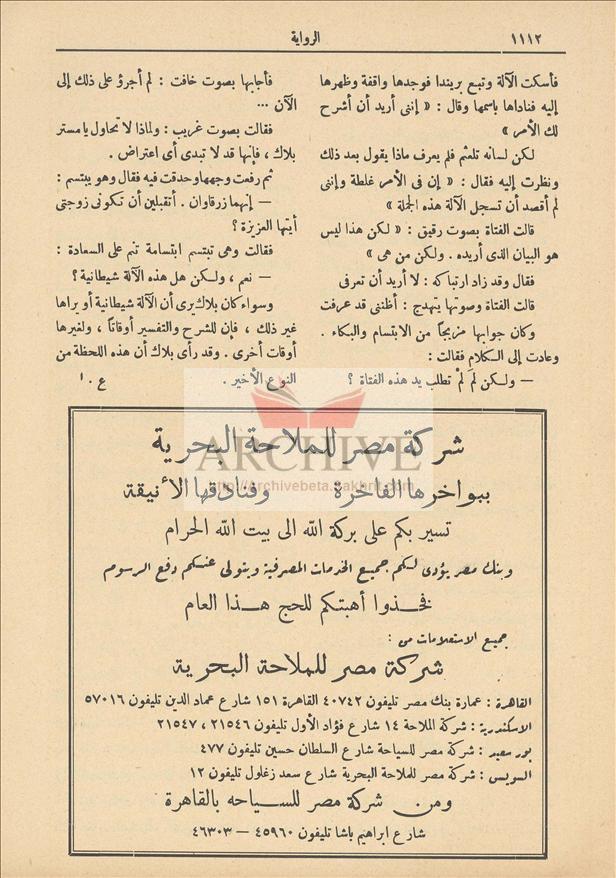 ١١١٢
الرواية
فأسكت الآلة وتبع بريندا فوجدها واقفة وظهرها
إليه فناداها باسمها وقال : « إننى أريد أن أشرح
لك الأمر »
لكن لسانه تلعثم فلم يعرف ماذا يقول بعد ذلك
ونظرت إليه فقال : « إن فى الأمر غلطة وإننى
لم أقصد أن تسجل الآلة هذه الجملة »
قالت الفتاة بصوت رقيق : « لكن هذا ليس
هو البيان الذى أريده . ولكن من هى »
فقال وقد زاد ارتباكه : لا أريد أن تعرفى
قالت الفتاة وصوتها يتهدج : أظننى قد عرفت
وكان جوابها مزيجاً من الابتسام والبكاء .
وعادت إلى الكلام فقالت :
— ولكن لمَ لمْ تطلب يد هذه الفتاة ؟
فأجابها بصوت خافت : لم أجرؤ على ذلك إلى
الآن ...
فقالت بصوت غريب : ولماذا لا تحاول يا مستر
بلاك ، فإنها قد لا تبدى أى اعتراض .
ثم رفعت وجهها وحدقت فيه فقال وهو يبتسم :
— إنهما زرقاوان . أتقبلين أن تكونى زوجتى
أيتها العزيزة ؟
فقالت وهى تبتسم ابتسامة تنم على السعادة :
— نعم ، ولكن هل هذه الآلة شيطانية ؟
وسواء كان بلاك يرى أن الآلة شيطانية أو يراها
غير ذلك ، فإن للشرح والتفسير أوقاتاً ، ولغيرها
أوقات أخرى . وقد رأى بلاك أن هذه اللحظة من
النوع الأخير . ع . ا
شركة مصر للملاحة البحرية
ARCHIVE
ببواخرها الفاخرة وفنادقها الأنيقة
http://Archivebeta.Sakhrit.com
تسير بكم على بركة الله الى بيت الله الحرام
وبنك مصر يؤدى لكم جميع الخدمات المصرفية ويتولى عنكم دفع الرسوم
فخذوا أهبتكم للحج هذا العام
جميع الاستعلامات من :
شركة مصر للملاحة البحرية
القاهرة : عمارة بنك مصر تليفون ٤٠٧٤٢ القاهرة ١٥١ شارع عماد الدين تليفون ٥٧٠١٦
الاسكندرية : شركة الملاحة ١٤ شارع فؤاد الأول تليفون ٢١٥٤٦ ، ٢١٥٤٧
بور سعيد : شركة مصر للسياحة شارع السلطان حسين تليفون ٤٧٧
السويس : شركة مصر للملاحة البحرية شارع سعد زغلول تليفون ١٢
ومن شركة مصر للسياحه بالقاهرة
شارع ابراهيم باشا تليفون ٤٥٩٦٠ — ٤٦٣٠٣